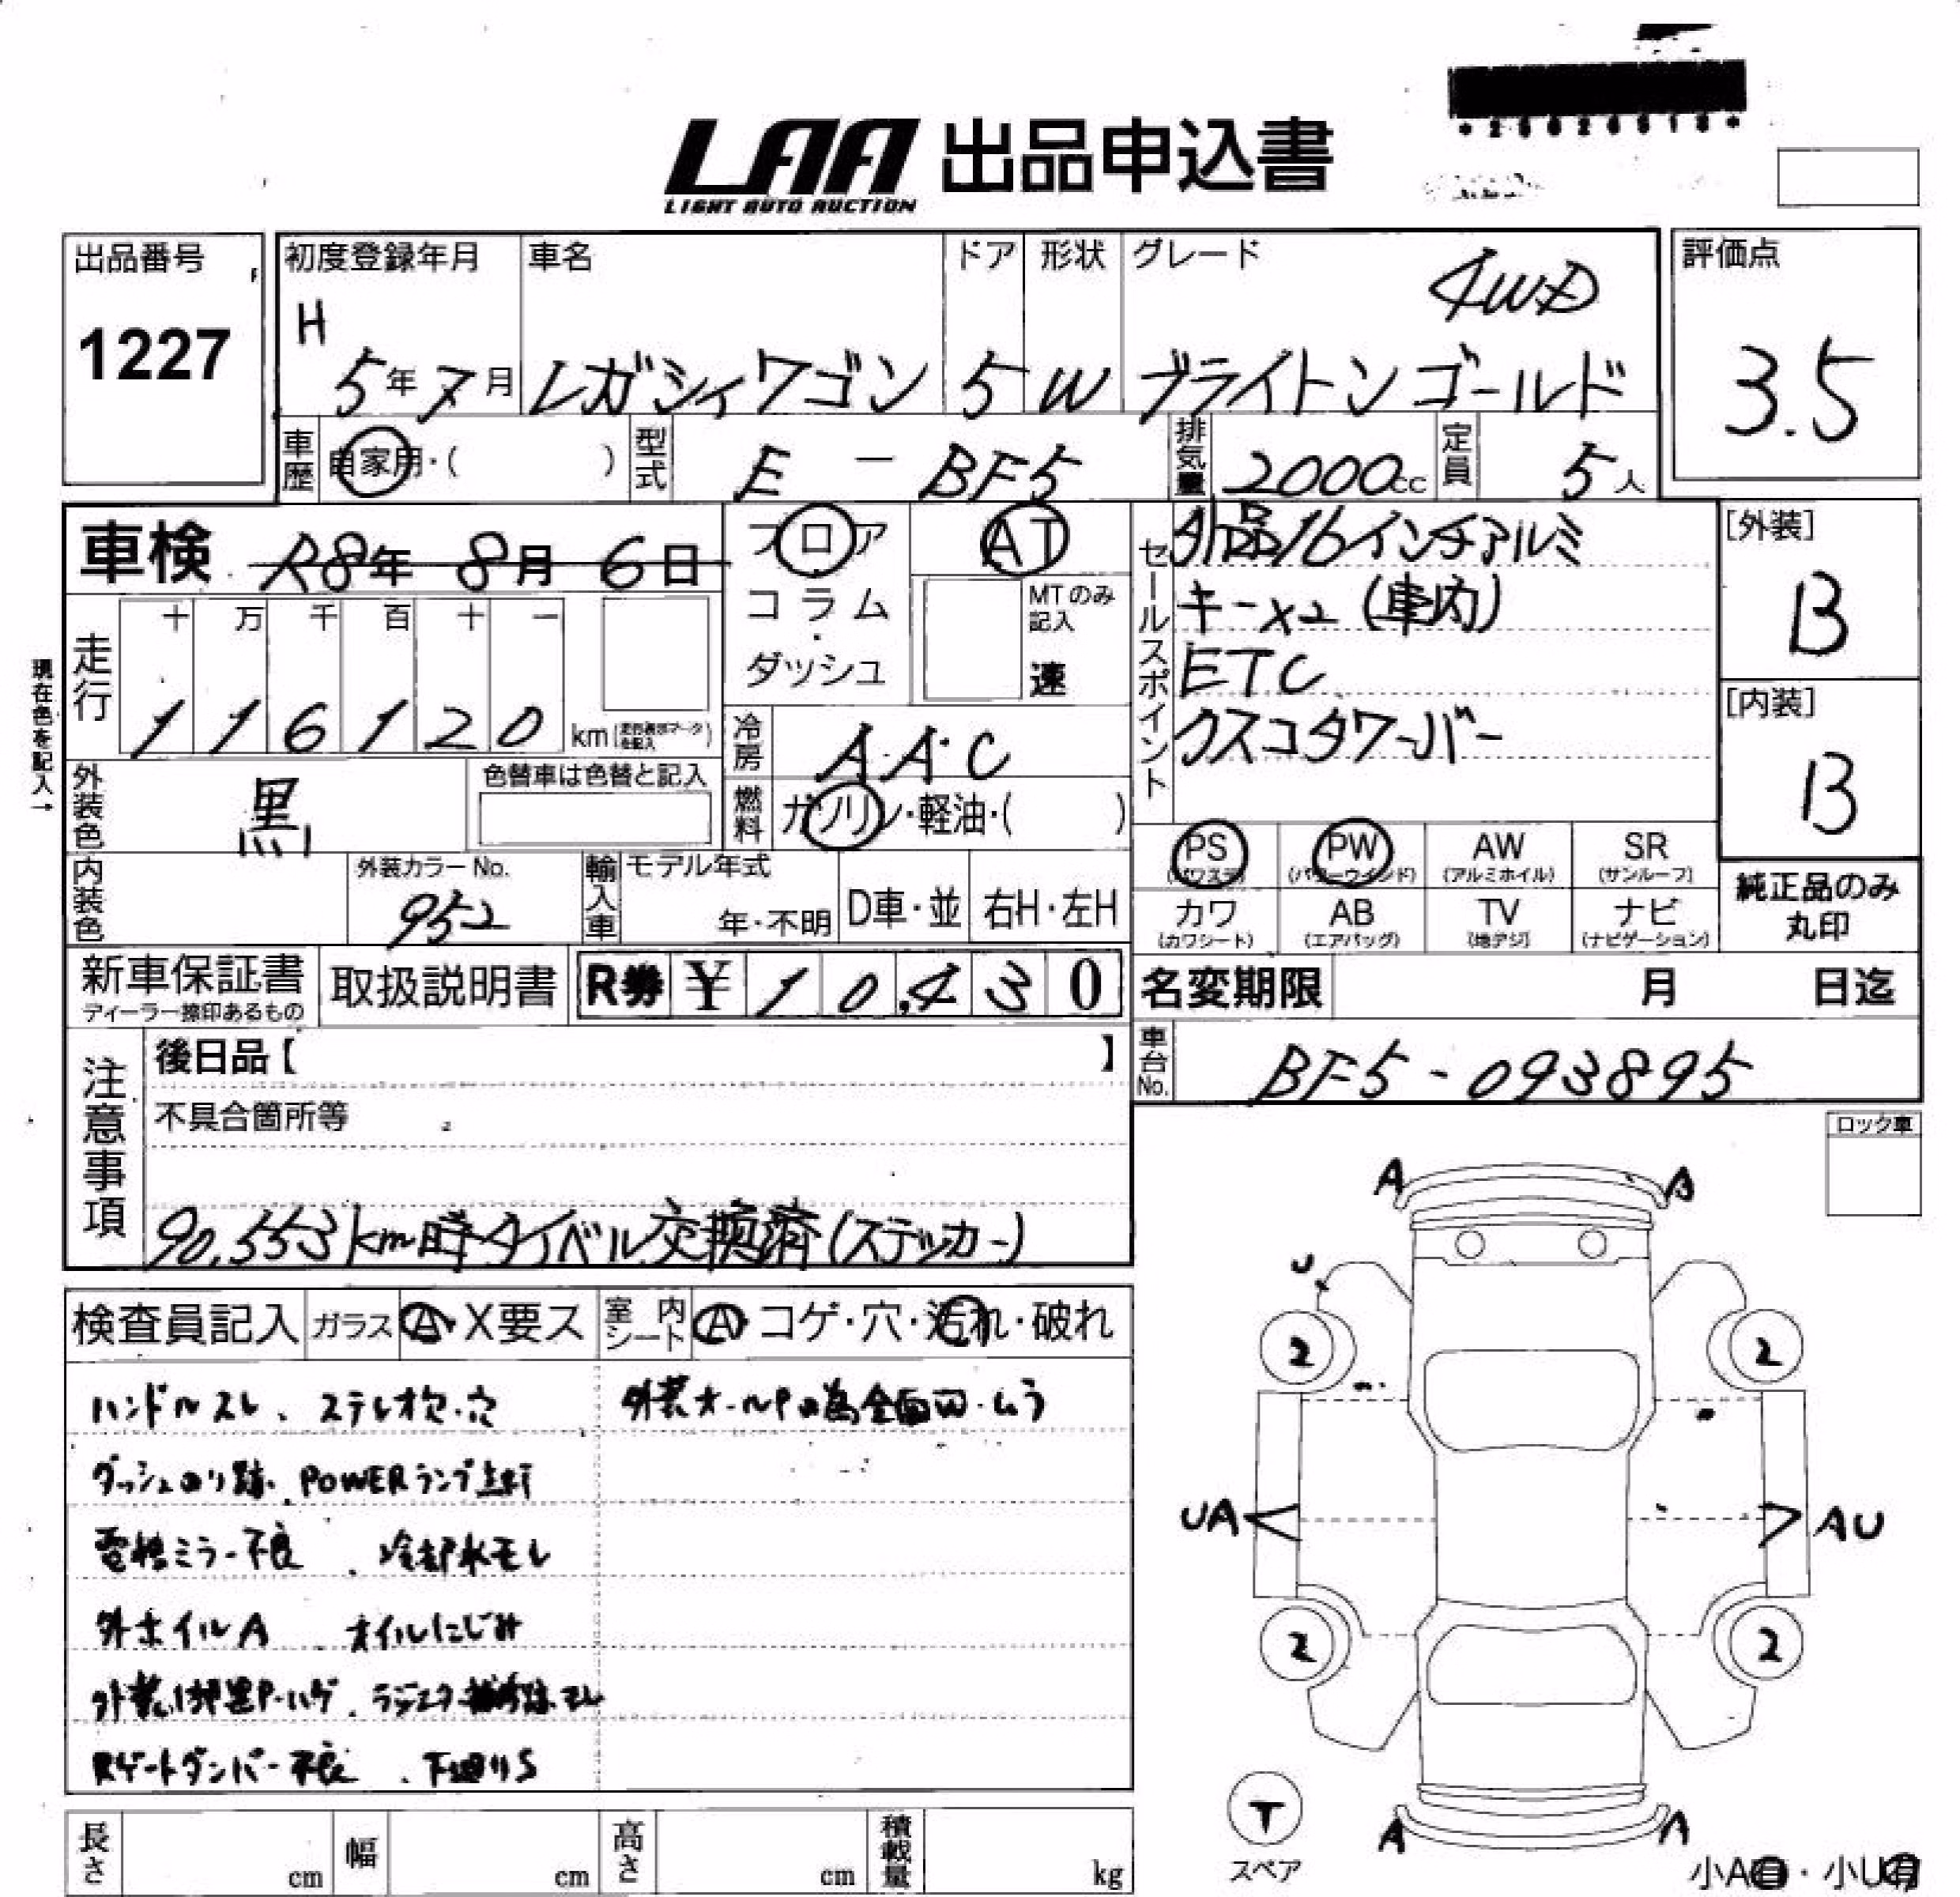 *25026518*
LAA 出品申込書
LIGHT AUTO AUCTION
出品番号
1227
初度登録年月
H
5年7月
車名
レガシィワゴン
ドア
5
形状
W
グレード
4WD
ブライトンゴールド
評価点
3.5
車歴
自家用・( )
型式
E - BF5
排気量
2000cc
定員
5人
車検
R8年 8月 6日
フロア
コラム
・
ダッシュ
AT
MTのみ
記入
速
セールスポイント
外品16インチアルミ
キー×2 (車内)
ETC
クスコタワーバー
[外装]
B
[内装]
B
現在色を記入→
走行
十 万 千 百 十 一
1 1 6 1 2 0 km
冷房
A・A・C
燃料
ガソリン・軽油・( )
外装色
黒
色替車は色替と記入
内装色
外装カラーNo.
952
輸入車
モデル年式
年・不明
D車・並
右H・左H
PS
(パワステ)
PW
(パワーウインド)
AW
(アルミホイル)
SR
(サンルーフ)
カワ
(カワシート)
AB
(エアバッグ)
TV
(地デジ)
ナビ
(ナビゲーション)
純正品のみ
丸印
新車保証書
ディーラー捺印あるもの
取扱説明書
R券 ¥ 1 0,4 3 0
名変期限
月 日迄
車台No.
BF5-093895
注意事項
後日品【 】
不具合箇所等
90,553km時タイベル交換済(ステッカー)
ロック車
検査員記入
ガラス
A・X要ス
室内シート
A・コゲ・穴・汚れ・破れ
ハンドルスレ、ステレオ欠・穴
ダッシュのり跡、POWERランプ点灯
電格ミラー不良、冷却水モレ
外ホイルA、オイルにじみ
Rゲートダンパー不良、下廻りS
A A
U
2 2
UA AU
2 2
T
スペア
A A
小A有・小U有
長さ
cm
幅
cm
高さ
cm
積載量
kg